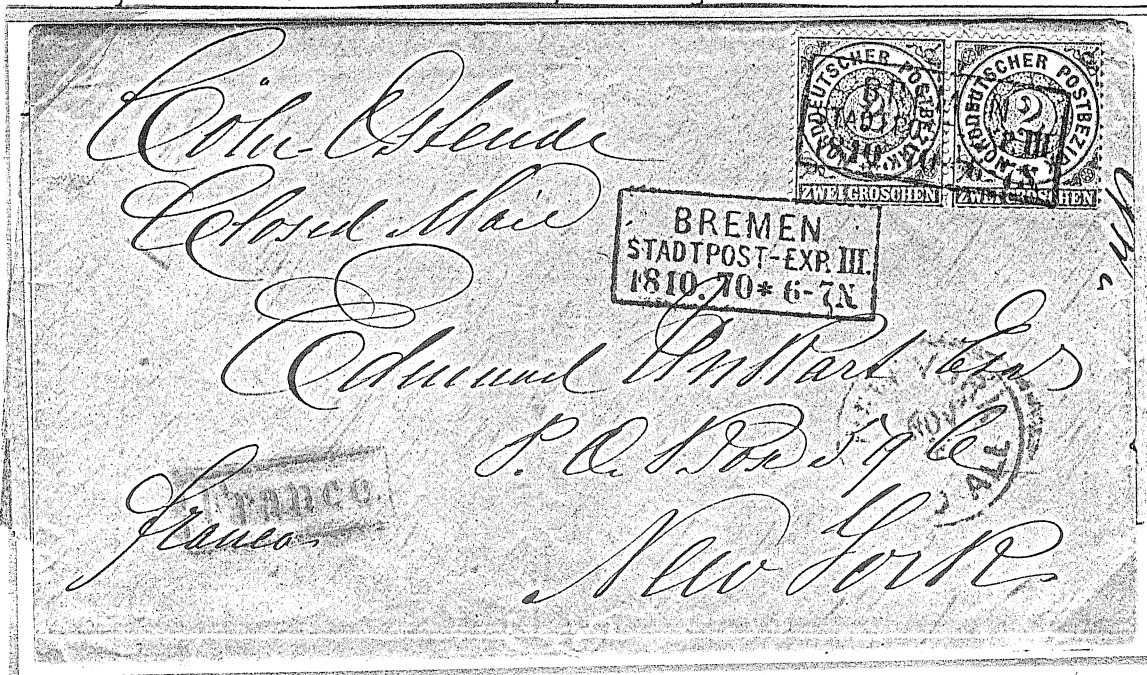 Cöln-Ostende
Closed Mail
NORDDEUTSCHER POSTBEZIRK
2
ZWEI GROSCHEN
NORDDEUTSCHER POSTBEZIRK
2
ZWEI GROSCHEN
BREMEN
STADTPOST-EXP. III.
18 10. 70 * 6-7N
Edmund Esqr
P. O. Box
New York
NOV
ALL
Franco.
franco